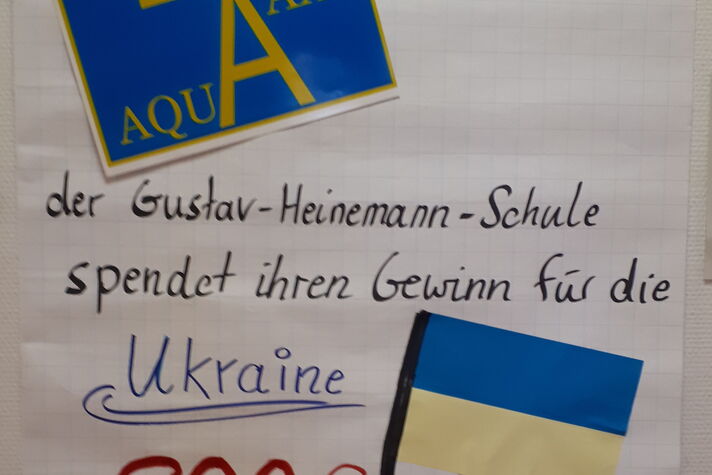 AQUA
der Gustav-Heinemann-Schule
spendet ihren Gewinn für die
Ukraine